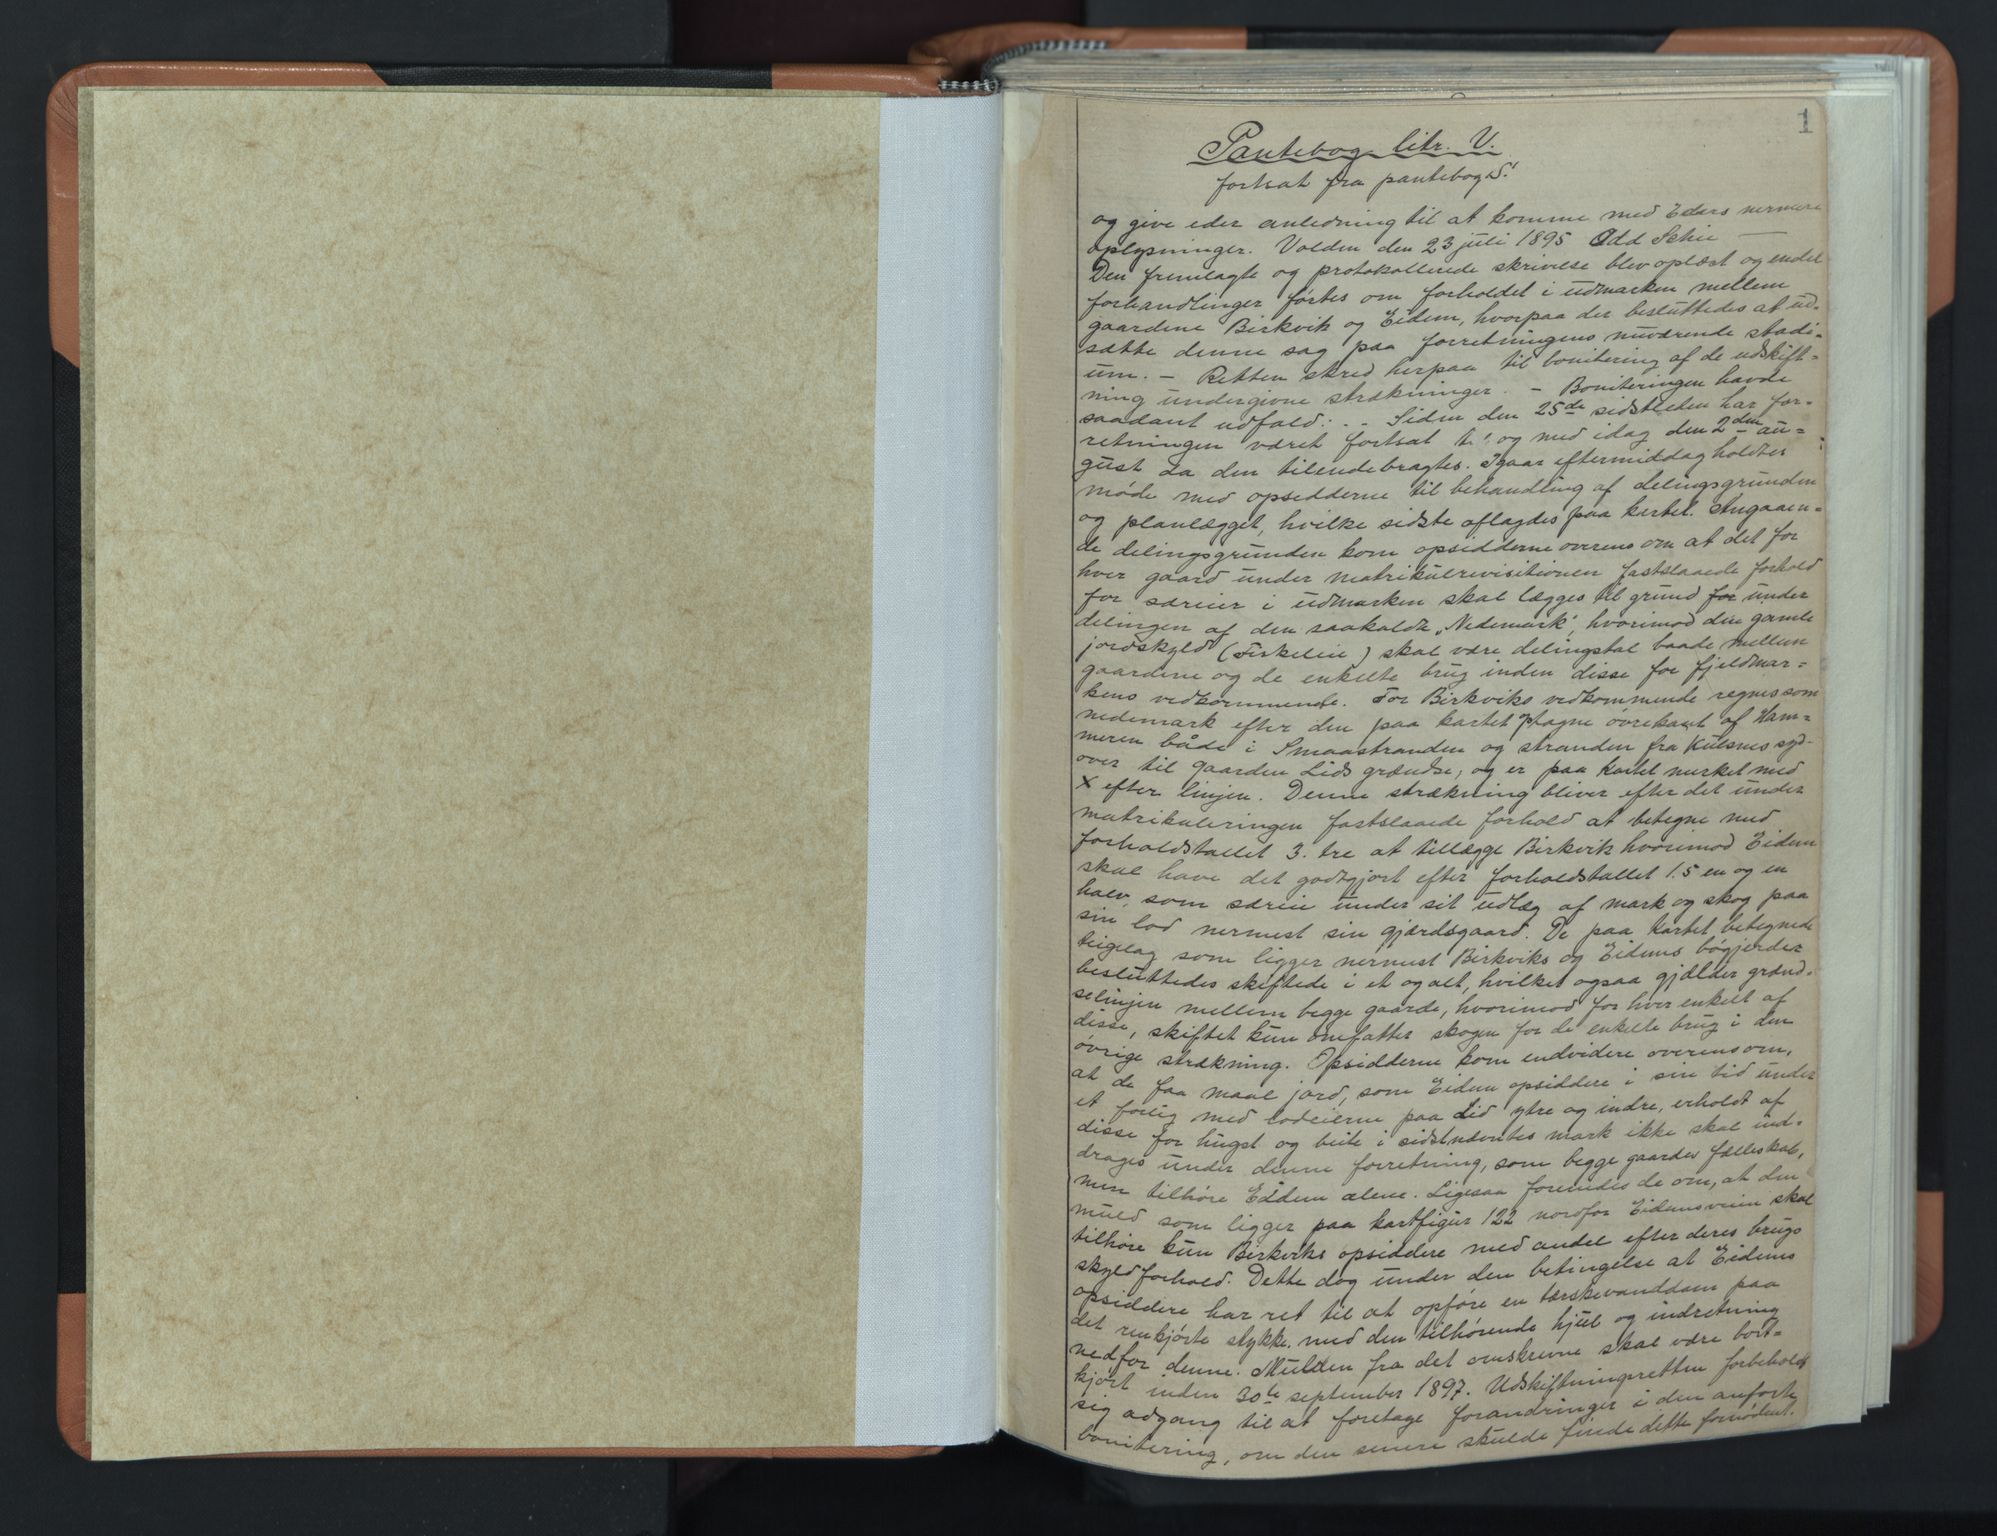 1
Pantebog litr. V.
fortsat fra pantebog S!
og give eder anledning til at komme med Eders nermere
oplysninger. Volden den 23 juli 1895 Odd Schie —
Den fremlagte og protokollerede skrivelse blev oplæst og endel
forhandlinger førtes om forholdet i udmarken mellem
gaardene Birkvik og Eidem, hvorpaa der besluttedes at ud=
sætte denne sag paa forretningens nuværende stadi=
um. — Retten skred herpaa til bonitering af de udskift=
ning undergivne strækninger. — Boniteringen havde
saadant udfald: . - Siden den 25de sidstleden har for=
retningen været fortsat t! og med idag den 2den au=
gust da den tilendebragtes. Igaar eftermiddag holdtes
møde med opsidderne til behandling af delingsgrunden
og planlægget, hvilke sidste aflagdes paa kartet. Angaaen=
de delingsgrunden kom opsidderne overens om at det for
hver gaard under matrikulrevisitionen fastslaaede forhold
for særeier i udmarken skal lægges til grund for under
delingen af den saakaldte „Nedemark", hvorimod den gamle
jordskyld (Fiskeleie) skal være delingstal baade mellem
gaardene og de enkelte brug inden disse for fjeldmar=
kens vedkommende. For Birkviks vedkommende regnes som
nedemark efter den paa kartet optagne øvrekant af Ham=
meren både i Smaastranden og stranden fra Kulsnes syd=
over til gaarden Lids grændse, og er paa kartet merket med
X efter linjen. Denne strækning bliver efter det under
matrikuleringen fastslaaede forhold at betegne med
forholdstallet 3. tre at tillægge Birkvik hvorimod Eidem
skal have det godtgjort efter forholdstallet 1.5 en og en
halv, som særeie under sit udlæg af mark og skog paa
sin lod nermest sin gjærdsgaard. De paa kartet betegnede
teigelag som ligger nermest Birkviks og Eidems bøgjerder
besluttedes skiftede i et og alt, hvilket ogsaa gjælder grænd=
selinjen mellem begge gaarde, hvorimod for hver enkelt af
disse, skiftet kun omfatter skogen for de enkelte brug i den
øvrige strækning. Opsidderne kom endvidere overens om,
at de faa maal jord, som Eidem opsiddere i sin tid under
et forlig med lodeierne paa Lid ytre og indre, erholdt af
disse for hugst og beite i sidstnævntes mark ikke skal ind=
drages under denne forretning, som begge gaarder fælleskab,
men tilhøre Eidem alene. Ligesaa forenedes de om, at den
muld som ligger paa kartfigur 122 nordfor Eidemsveien skal
tilhøre kun Birkviks opsiddere med andel efter deres brugs
skyldforhold. Dette dog under den betingelse at Eidems
opsiddere har ret til at opføre en tærskevanddam paa
det renkjørte stykke med den tilhørende hjul og indretning
nedfor denne. Mulden fra det omskrevne skal være bort=
kjørt inden 30te september 1897. Udskiftningsretten forbeholdt
sig adgang til at foretage forandringer i den anførte
bonitering, om den senere skulde finde dette fornødent.